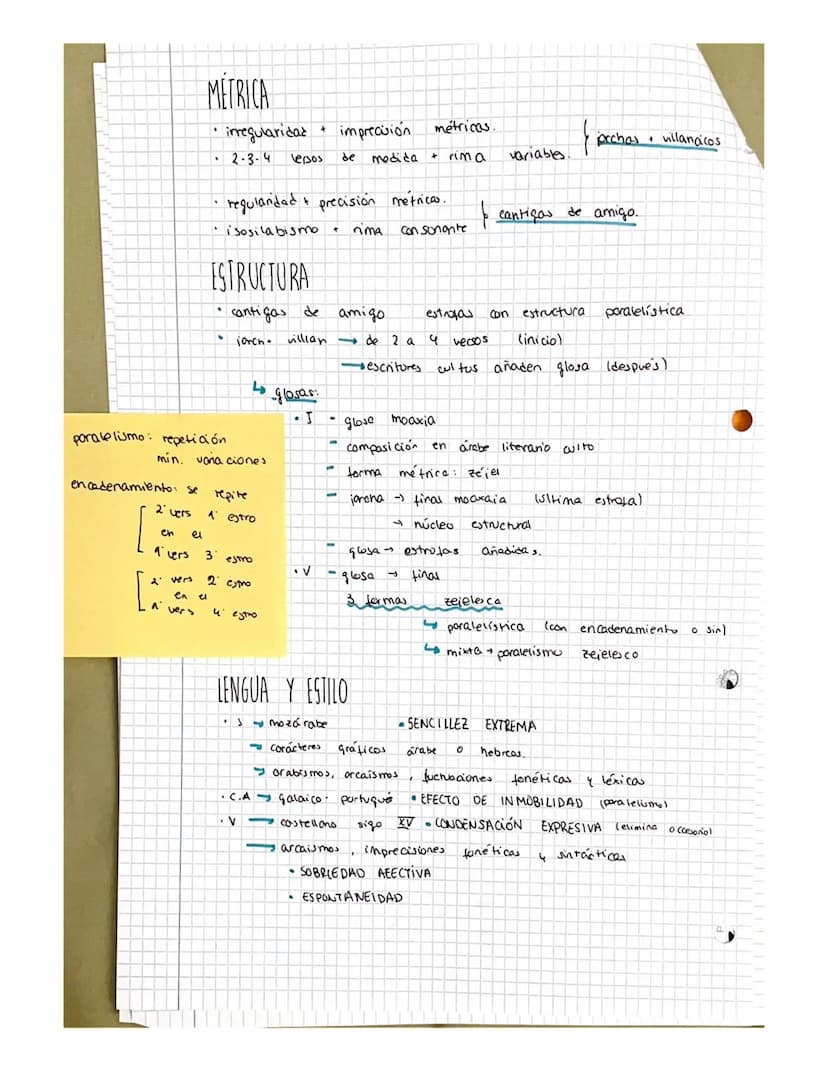 MÉTRICA
· irregularidad + imprecisión métricas.
· 2-3-4 versos de medida + rima variables.
jarchas + villancicos
· regularidad + precisión métrica.
· isosilabismo + rima consonante
cantigas de amigo.
ESTRUCTURA
· cantigas de amigo estrofas con estructura paralelística
· jarch. villan → de 2 a 4 versos (inicio)
→ escritores cultos añaden glosa (después)
↳ glosas:
· J - glosa moaxia
- composición en árabe literario culto
- forma métrica: zéjel
- jarcha → finas moaxaia (última estrofa)
→ núcleo estructural
- glosa → estrofas añadidas.
· V - glosa → finas
3 formas zejelesca
↳ paralelística (con encadenamiento o sin)
↳ mixta → paralelismo zejelesco
paralelismo: repetición
min. variaciones
encadenamiento: se repite
2º vers 1º estro
en el
1º vers 3º estro
2º vers 2º estro
en el
1º vers 4º estro
LENGUA Y ESTILO
· J → mozárabe · SENCILLEZ EXTREMA
→ carácteres gráficos árabe o hebreas.
→ arabismos, arcaísmos, fluctuaciones fonéticas y léxicas
· C.A → galaico-portugué · EFECTO DE INMOBILIDAD (paralelismo)
· V → castellano sigo XV · CONDENSACIÓN EXPRESIVA (elimina accesorio)
→ arcaísmos, imprecisiones fonéticas y sintácticas
· SOBRIEDAD AFECTIVA
· ESPONTANEIDAD